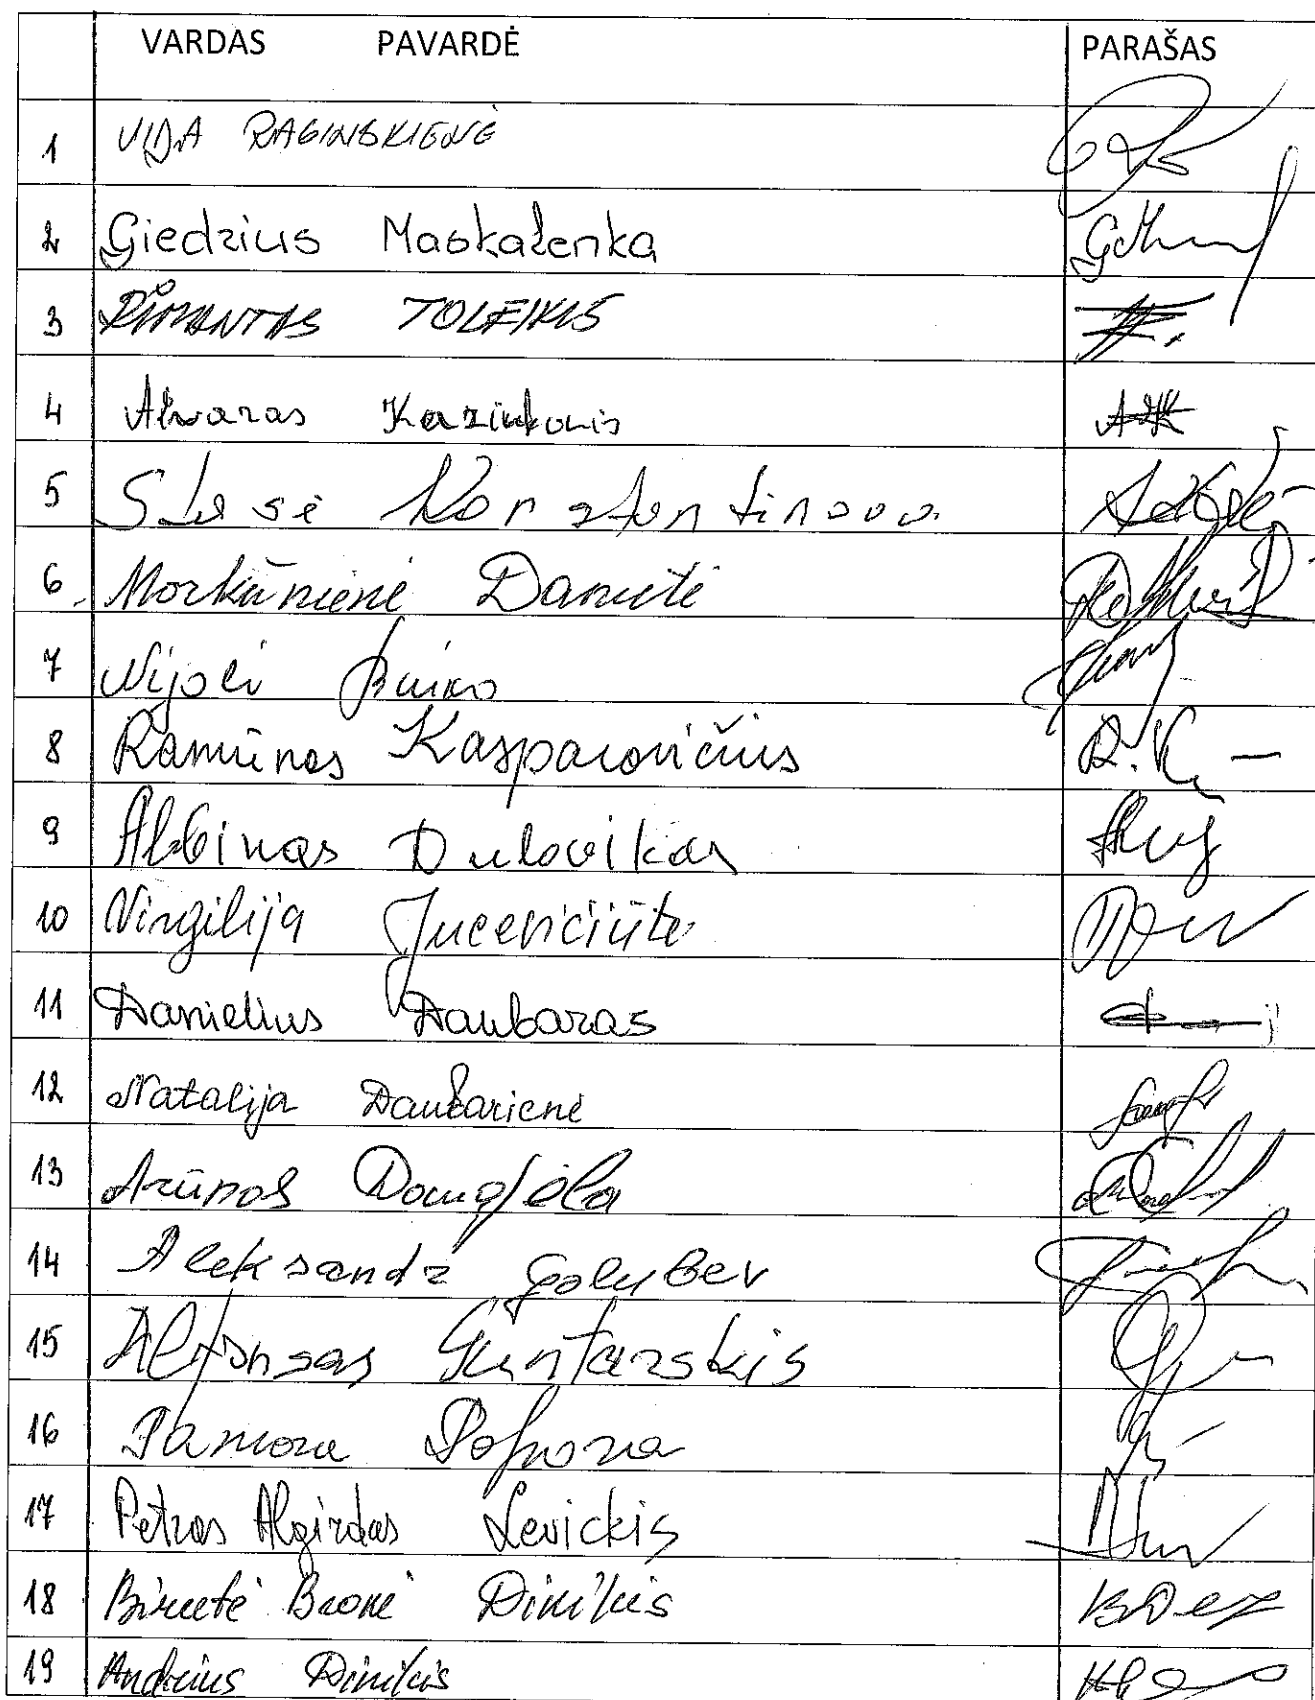 VARDAS PAVARDĖ PARAŠAS
1 VIDA RAGINSKIENĖ
2 Giedzius Maskalenka
3 RIMANTAS TOLEIKIS
4 Aivaras Kaziukonis
5 Stasė Konstantinova
6 Morkūnienė Danutė
7 Nijolė Buiko
8 Ramūnas Kasparovičius
9 Albinas Dulovikas
10 Virgilija Jucevičiūtė
11 Danielius Daubaras
12 Natalija Daubarienė
13 Arūnas Daugėla
14 Aleksandr Golubev
15 Alfonsas Guntarskis
16
17 Petras Algirdas Levickis
18 Birutė Bronė Dinikis
19 Andrius Dinikis